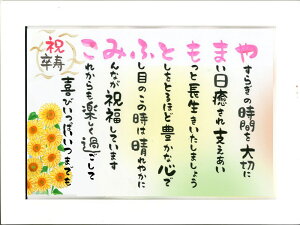 やすらぎの時間を大切に
まい日癒され支えあい
もっと長生きいたしましょう
としをとるほど豊かな心で
ふし目のこの時は晴れやかに
みんなが祝福しています
これからも楽しく過ごして
喜びいっぱいいつまでも
祝
卒寿